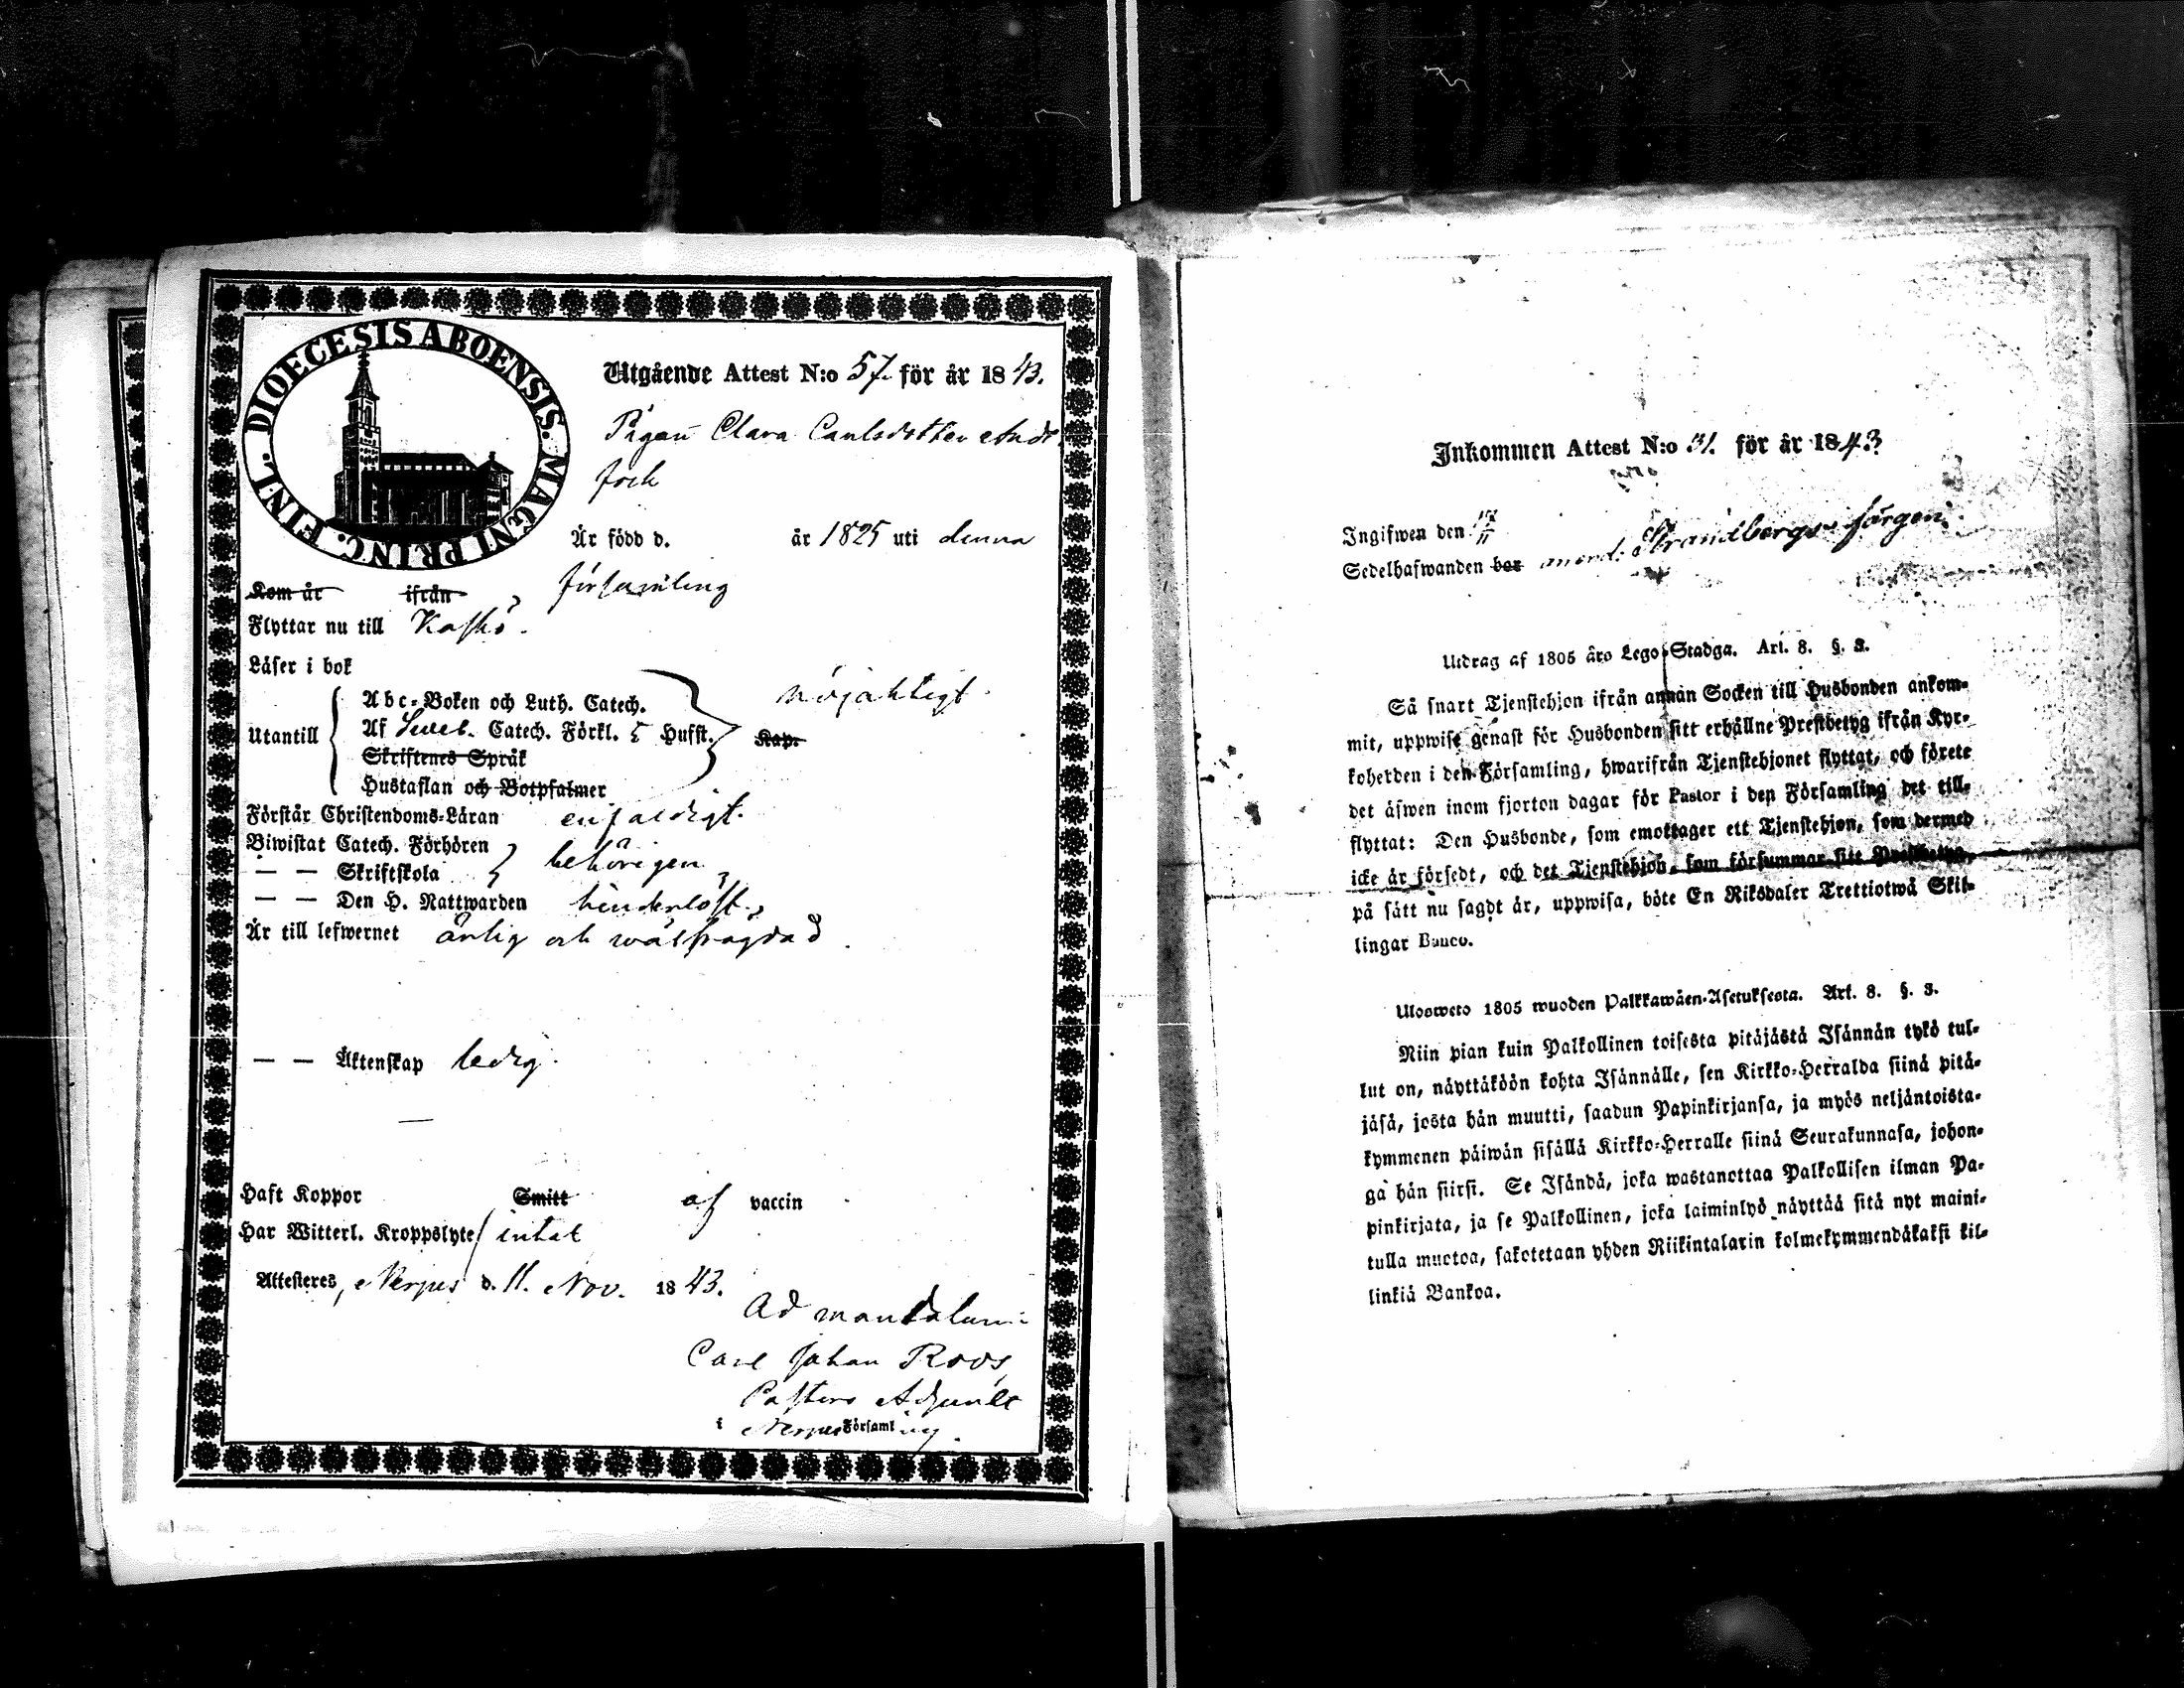 DIOECESIS ABOENSIS. MAGNI PRINC. FINL.
Utgående Attest N:o 57. för år 1843.
Pigan Clara Carlsdotter
Är född d. år 1825 uti denna
församling
Kom år ifrån
Flyttar nu till Kaskö.
Läser i bok nöjaktigt.
Abc-Boken och Luth. Catech.
Utantill Af Sweb. Catech. Förkl. 5 Hufst. Kap.
Skriftenes Språk
Hustaflan och Botpsalmer
Förstår Christendoms-Läran enfaldigt.
Biwistat Catech. Förhören
— — Skriftskola behörigen
— — Den H. Nattwarden hinderlöst.
Är till lefwernet ärlig och wälfrägdad
— — Äktenskap ledig.
Haft Koppor Smitt af vaccin
Har Witterl. Kroppslyte intet
Attesteras, Nerpes d. 11. Nov. 1843.
Ad mandatum:
Carl Johan Roos
Pastors Adjunkt
i Nerpes Församling.
Inkommen Attest N:o 31. för år 1843
Ingifwen den
Sedelhafwanden bor Strandbergs
Utdrag af 1805 års Lego-Stadga. Art. 8. §. 3.
Så snart Tjenstehjon ifrån annan Socken till Husbonden ankom-
mit, uppwise genast för Husbonden sitt erhållne Prestbetyg ifrån Kyr-
koherden i den Församling, hwarifrån Tjenstehjonet flyttat, och förete
det äfwen inom fjorton dagar för Pastor i den Församling det till-
flyttat: Den Husbonde, som emottager ett Tjenstehjon, som dermed
icke är försedt, och det Tjenstehjon, som försummar sitt Prestbetyg,
på sätt nu sagdt är, uppwisa, böte En Riksdaler Trettiotwå Skil-
lingar Banco.
Ulosweto 1805 wuoden Palkkawäen-Asetuksesta. Art. 8. §. 3.
Niin pian kuin Palkollinen toisesta pitäjästä Isännän tykö tul-
lut on, näyttäköön kohta Isännälle, sen Kirkko-Herralda siinä pitä-
jäsä, josta hän muutti, saadun Papinkirjansa, ja myös neljäntoista-
kymmenen päiwän sisällä Kirkko-Herralle siinä Seurakunnasa, johon-
ga hän siirsi. Se Isändä, joka wastanottaa Palkollisen ilman Pa-
pinkirjata, ja se Palkollinen, joka laiminlyö näyttää sitä nyt maini-
tulla muotoa, sakotetaan yhden Riikintalarin kolmekymmendäkaksi kil-
linkiä Bankoa.